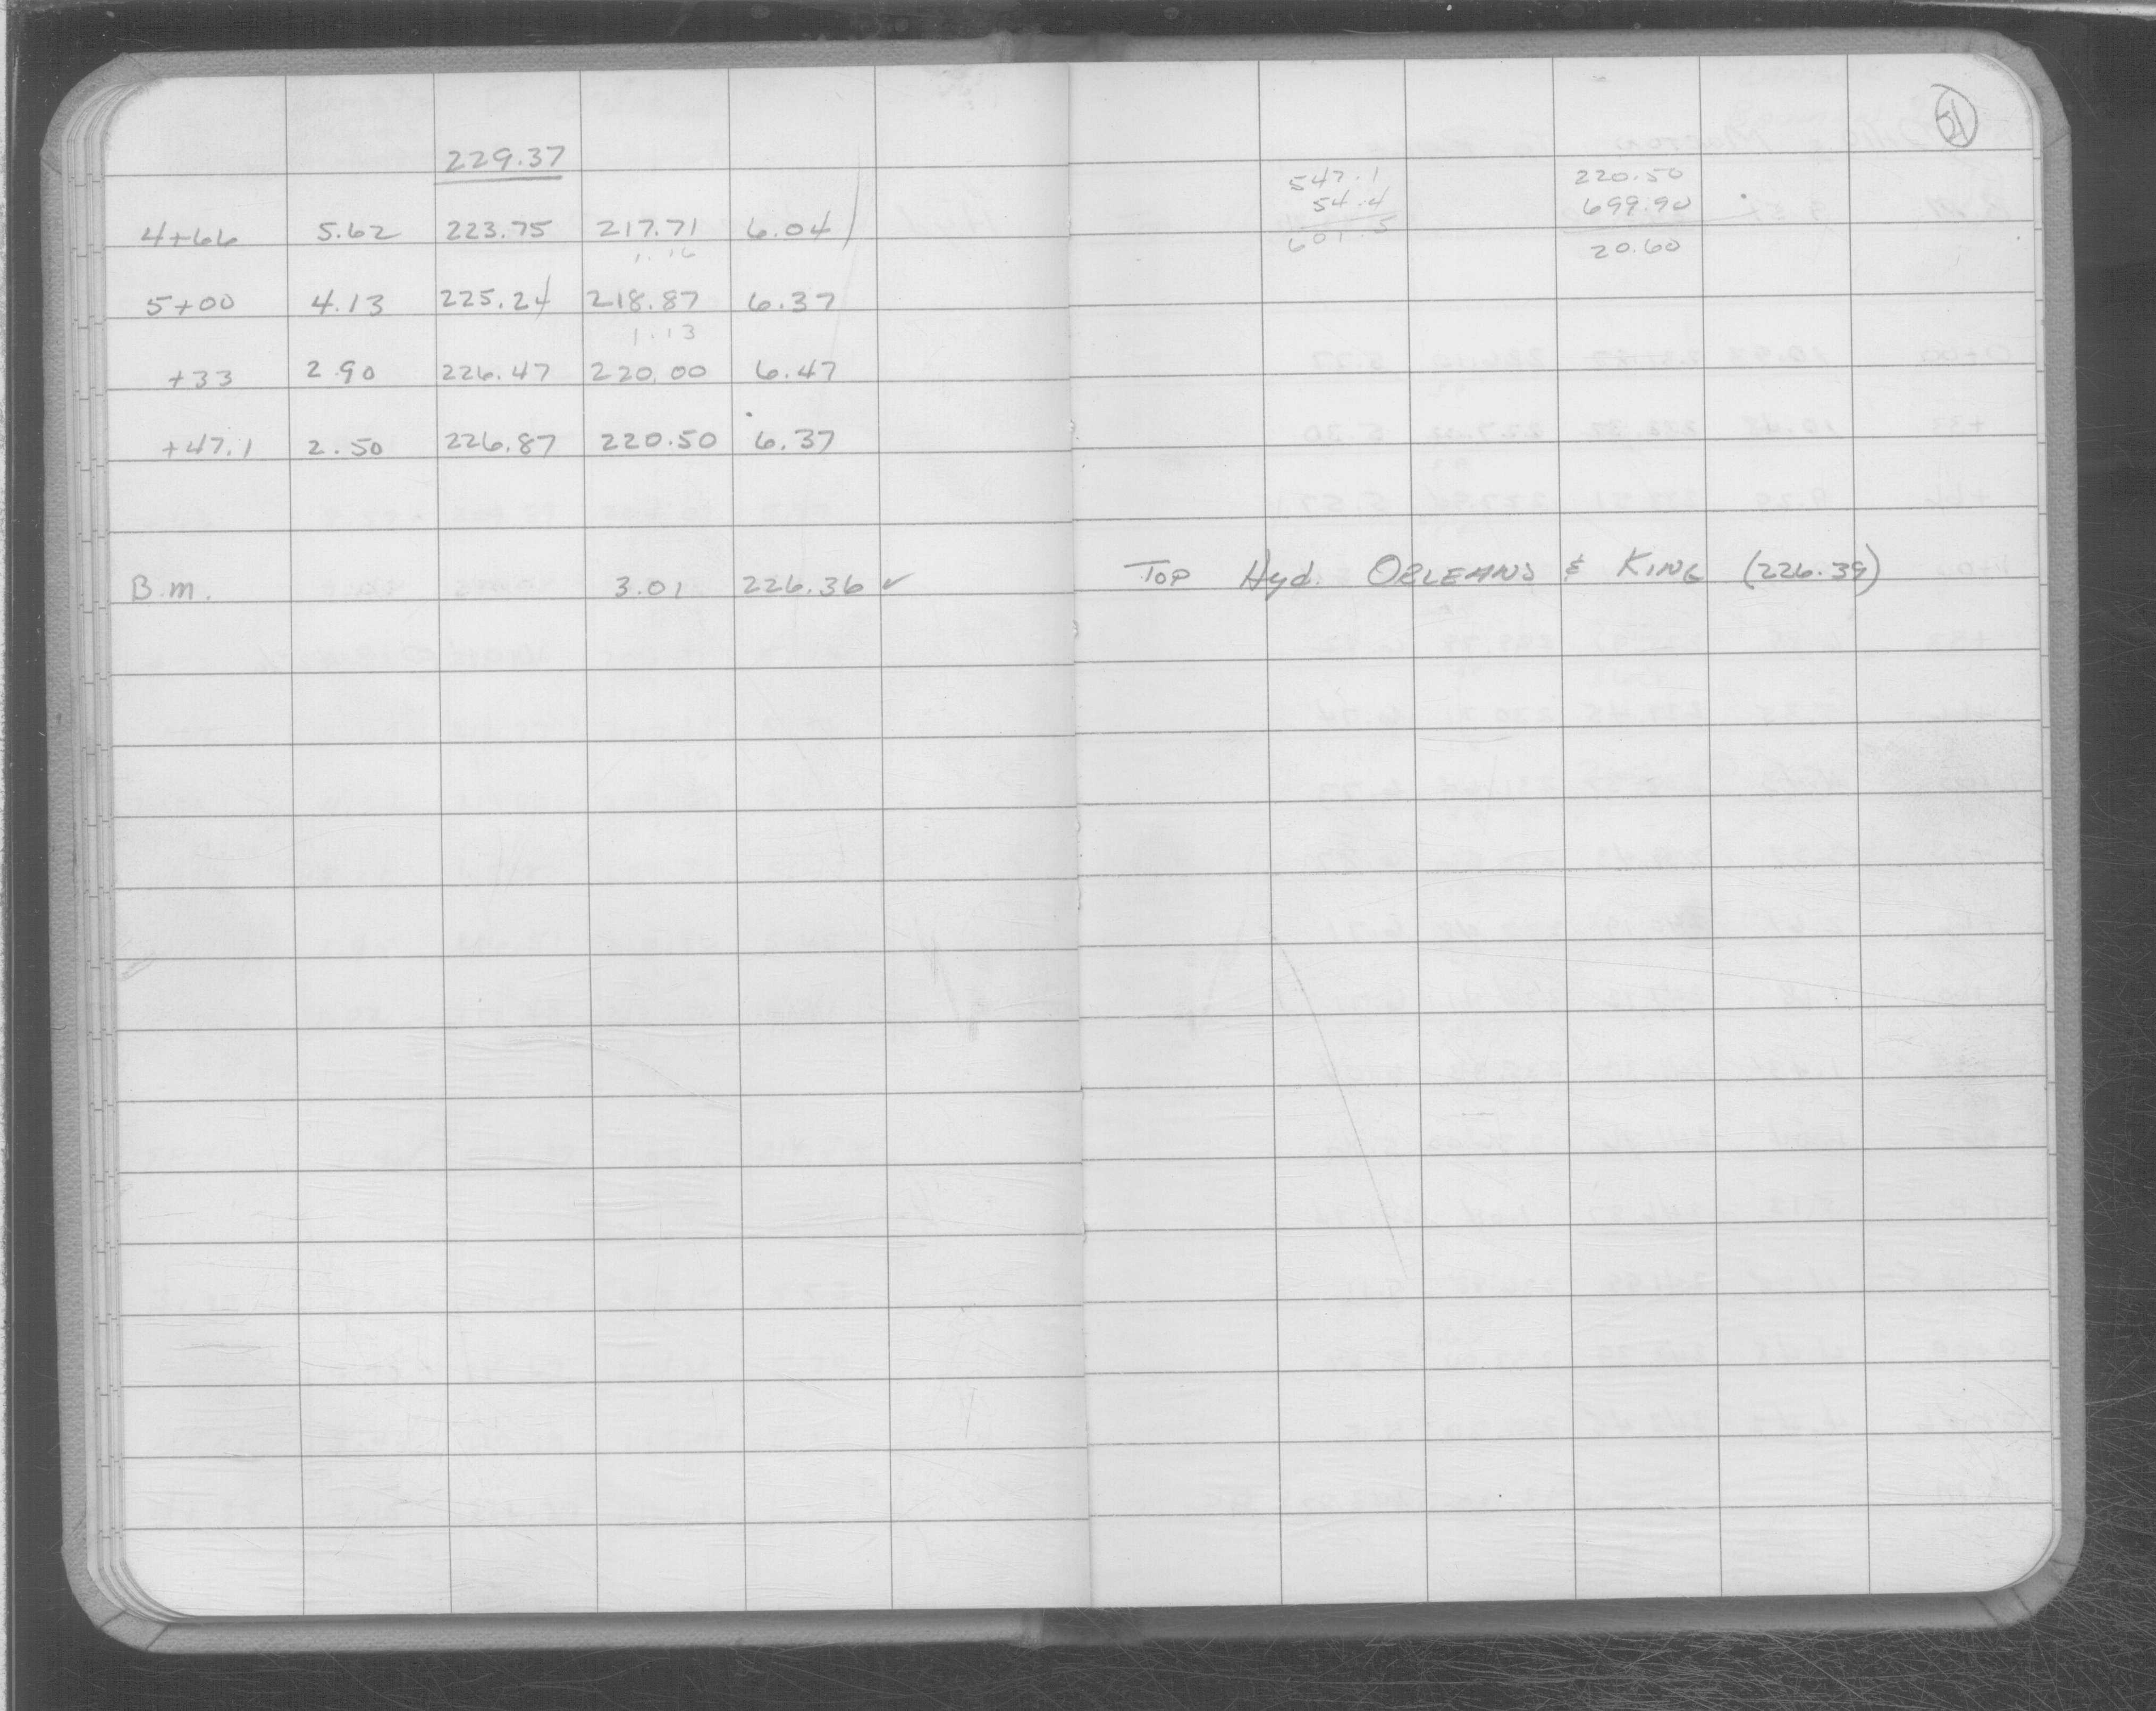 229.37
4+66 5.62 223.75 217.71 6.04
1.16
5+00 4.13 225.24 218.87 6.37
1.13
+33 2.90 226.47 220.00 6.47
+47.1 2.50 226.87 220.50 6.37
B.m. 3.01 226.36 ✓
547.1 220.50
54.4 699.90
601.5 20.60
Top Hyd. ORLEANS & KING (226.39)